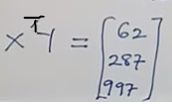 x^T y = [62
287
997]